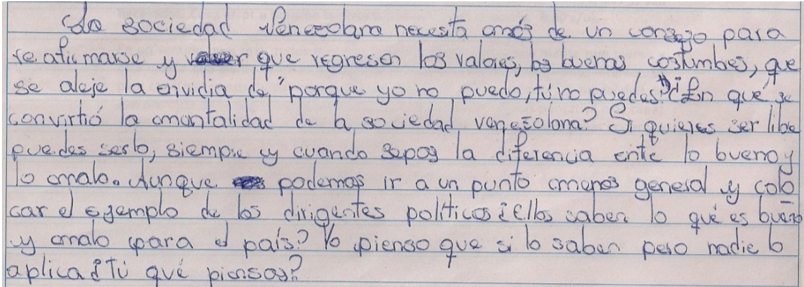 La sociedad Venezolana necesita más de un consejo para
reafirmarse y que regresen los valores, las buenas costumbes, que
se aleje la envidia de "porque yo no puedo, tú no puedes" ¿En qué se
convirtió la mantalidad de la sociedad venezolana? Si quieres ser libe
puedes serlo, siempre y cuando sepas la diferencia ente lo bueno y
lo malo. Aunque podemos ir a un punto menos general y colo
car el ejemplo de los dirigentes políticos ¿Ellos saben lo qué es bueno
y malo para el país? Yo pienso que si lo saben pero nadie lo
aplica ¿Tú qué piensas?